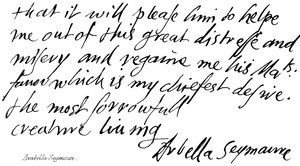 that it will please him to helpe
me out of this great distresse and
misery and regaine me his Ma:ts:
favor which is my chiefest desire.
the most sorrowfull
creature living
Arbella Seymaure
Arabella Seymaure.